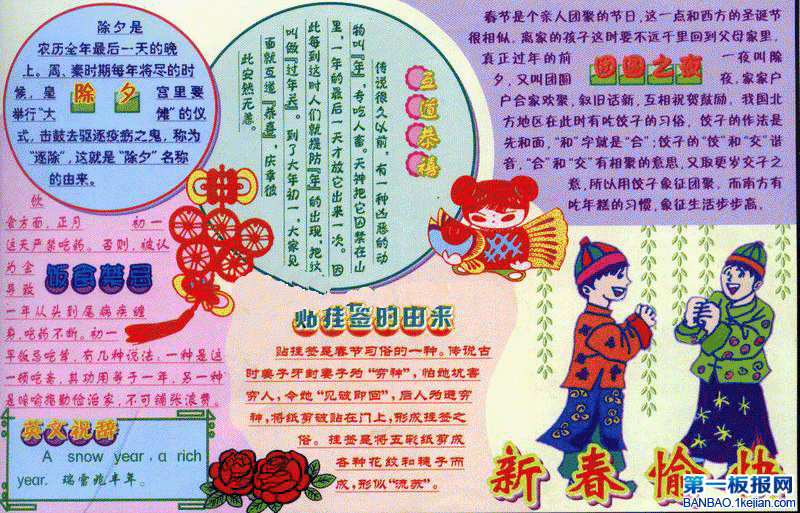 除夕是
农历全年最后一天的晚
上。周、秦时期每年将尽的时
候，皇 除夕 宫里要
举行“大 傩”的仪
式，击鼓去驱逐疫疠之鬼，称为
“逐除”，这就是“除夕”名称
的由来。
互道恭禧
传说很久以前，有一种凶恶的动
物叫“年”，专吃人畜。天神把它囚禁在山
里，一年的最后一天才放它出来一次。因
此每到这时人们就提防“年”的出现，把这
叫做“过年关”。到了大年初一，大家见
面就互道“恭喜”，庆幸彼
此安然无恙。
春节是个亲人团聚的节日，这一点和西方的圣诞节
很相似。离家的孩子这时要不远千里回到父母家里。
真正过年的前 一夜叫除
夕，又叫团圆 夜，家家户
团圆之夜
户合家欢聚，叙旧话新，互相祝贺鼓励。我国北
方地区在此时有吃饺子的习俗。饺子的作法是
先和面，“和”字就是“合”；饺子的“饺”和“交”谐
音，“合”和“交”有相聚的意思，又取更岁交子之
意，所以用饺子象征团聚。而南方有
吃年糕的习惯，象征生活步步高。
饮
食方面，正月 初一
这天严禁吃药。否则，被认
为会
导致
饭食禁忌
一年从头到尾病疾缠
身，吃药不断。初一
早饭忌吃荤，有几种说法：一种是这
一顿吃素，其功用等于一年，另一种
是 勤俭治家，不可铺张浪费。
英文祝辞
A snow year, a rich
year. 瑞雪兆丰年。
贴挂签的由来
贴挂签是春节习俗的一种。传说古
时姜子牙封妻子为“穷神”，怕她坑害
穷人，令她“见破即回”，后人为避穷
神，将纸剪破贴在门上，形成挂签之
俗。挂签是将五彩纸剪成
各种花纹和穗子而
成，形似“流苏”。
新春愉快
第一板报网
BANBAO.1kejian.com